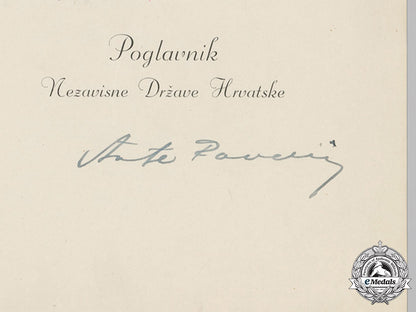 Poglavnik
Nezavisne Države Hrvatske
Ante Pavelić
eMedals